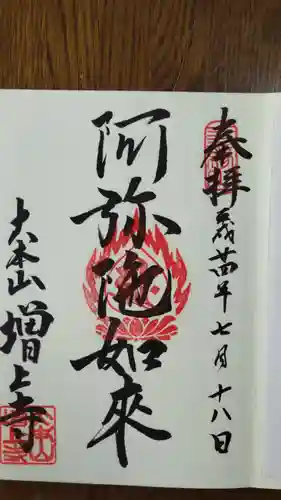 奉拝
平成廿四年七月十八日
阿弥陀如来
大本山増上寺